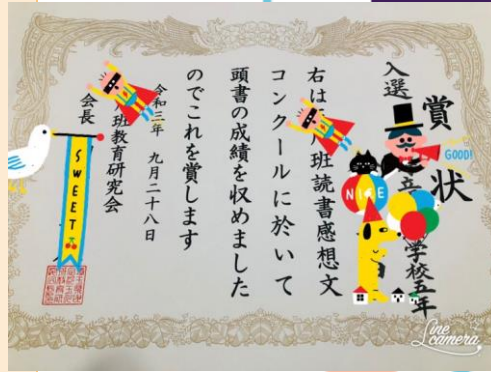 賞状
入選
立
学校五年
右は
班読書感想文
コンクールに於いて
頭書の成績を収めました
のでこれを賞します
令和三年 九月二十八日
班教育研究会
会長
SWEET
NICE
GOOD!
Line camera